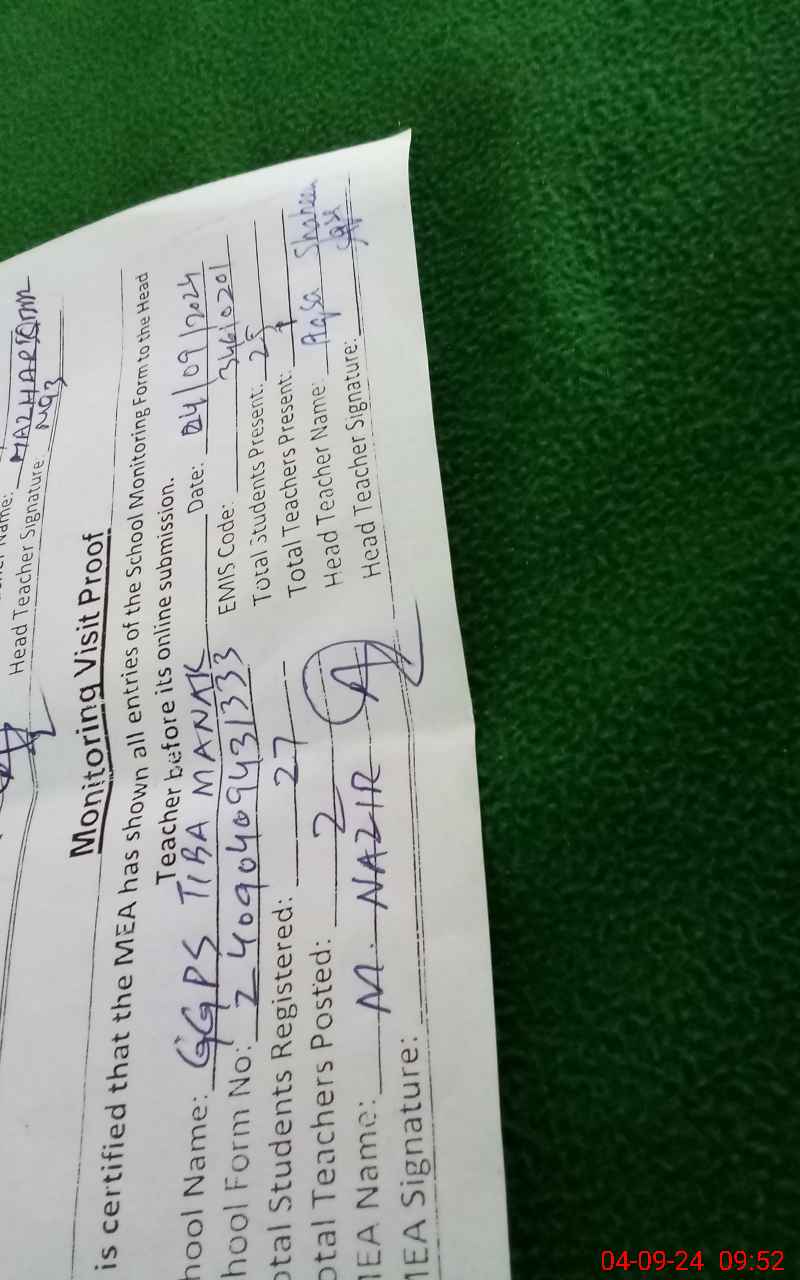 Name: MAZHAR
Head Teacher Signature:
Monitoring Visit Proof
is certified that the MEA has shown all entries of the School Monitoring Form to the Head
Teacher before its online submission.
hool Name: GGPS TIBA MANAK Date: 04/09/2024
hool Form No: 2409040943 1333 EMIS Code: 34610201
otal Students Registered: 27 Total Students Present: 25
otal Teachers Posted: 2 Total Teachers Present:
MEA Name: M. NAZIR Head Teacher Name: Aqsa Shaheen
MEA Signature: Head Teacher Signature:
04-09-24 09:52